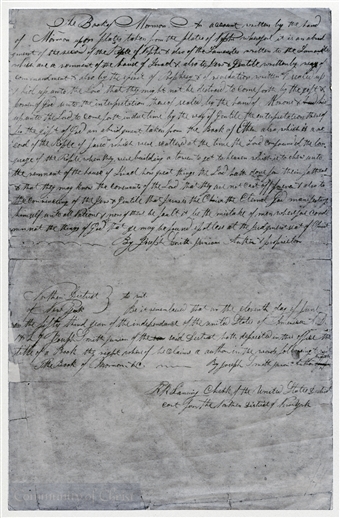 The Book of Mormon & account written by the hand
of Mormon upon plates taken from the plates of Nephi wherefore it is an abridg
ment of the record of the People of Nephi & also of the Lamanites written to the Lamanites
which are a remnant of the house of Israel & also to Jew & Gentile written by way of
commandment & also by the spirit of Prophesy & of revelation written & sealed up
& hid up unto the Lord that they might not be destroyed to come forth by the gift &
power of God unto the interpretation thereof sealed by the hand of Moroni & hid
up unto the Lord to come forth in due time by the way of Gentile the interpretation thereof
by the gift of God an abridgment taken from the Book of Ether also which is a re
cord of the People of Jared which were scattered at the time the Lord confounded the lan
guage of the people when they were building a tower to get to heaven which is to shew unto
the remnant of the house of Israel how great things the Lord hath done for their fathers
& that they may know the covenants of the Lord that they are not cast off forever & also to
the convincing of the Jew & Gentile that Jesus is the Christ the Eternal God manifesting
himself unto all nations & now if there be fault it be the mistake of men wherefore condem
n not the things of God that ye may be found spotless at the judgment seat of Christ
By Joseph Smith junior Author & proprietor
Northern District
of New York to wit
Be it remembered that on the eleventh day of June
in the fifty third year of the independence of the United States of America
Joseph Smith junior of the said District hath deposited in this office the
Title of a Book the right whereof he claims as author in the words following
The Book of Mormon &c By Joseph Smith junior
R R Lansing Clerk of the United States District
court for the Northern District of New York
Community of Christ